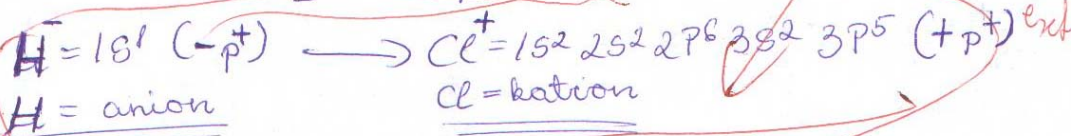 H⁻ = 1s¹ (-p⁺) → Cl⁺ = 1s² 2s² 2p⁶ 3s² 3p⁵ (+p⁺)
H = anion Cl = kation